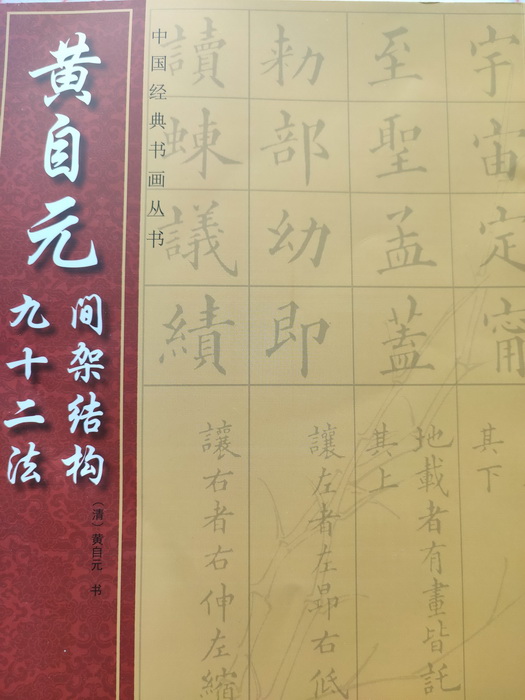 黄自元
间架结构
九十二法
（清）黄自元 书
中国经典书画丛书
宇宙定甯
其下
至聖孟蓋
地載者有畫皆託
其上
勅部幼即
讓左者左昂右低
讀蝀議績
讓右者右伸左縮